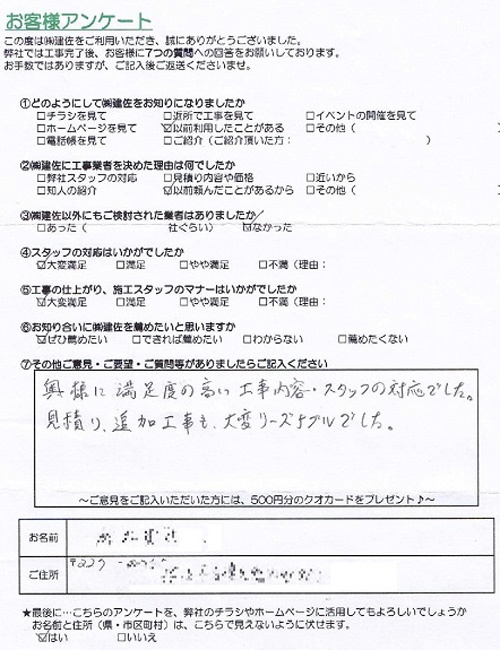 お客様アンケート
この度は㈱建佐をご利用いただき、誠にありがとうございました。
弊社では工事完了後、お客様に7つの質問への回答をお願いしております。
お手数ではありますが、ご記入後ご返送くださいませ。
①どのようにして㈱建佐をお知りになりましたか
□チラシを見て □近所で工事を見て □イベントの開催を見て
□ホームページを見て ☑以前利用したことがある □その他（
□電話帳を見て □ご紹介（ご紹介頂いた方： ）
②㈱建佐に工事業者を決めた理由は何でしたか
□弊社スタッフの対応 □見積り内容や価格 □近いから
□知人の紹介 ☑以前頼んだことがあるから □その他（ ）
③㈱建佐以外にもご検討された業者はありましたか
□あった（ 社ぐらい） ☑なかった
④スタッフの対応はいかがでしたか
☑大変満足 □満足 □やや満足 □不満（理由：
⑤工事の仕上がり、施工スタッフのマナーはいかがでしたか
☑大変満足 □満足 □やや満足 □不満（理由：
⑥お知り合いに㈱建佐を薦めたいと思いますか
☑ぜひ薦めたい □できれば薦めたい □わからない □薦めたくない
⑦その他ご意見・ご要望・ご質問等がありましたらご記入ください
奥様に満足度の高い工事内容・スタッフの対応でした。
見積り、追加工事も、大変リーズナブルでした。
～ご意見をご記入いただいた方には、500円分のクオカードをプレゼント♪～
お名前
ご住所 〒227
★最後に…こちらのアンケートを、弊社のチラシやホームページに活用してもよろしいでしょうか
お名前と住所（県・市区町村）は、こちらで見えないように伏せます。
☑はい □いいえ